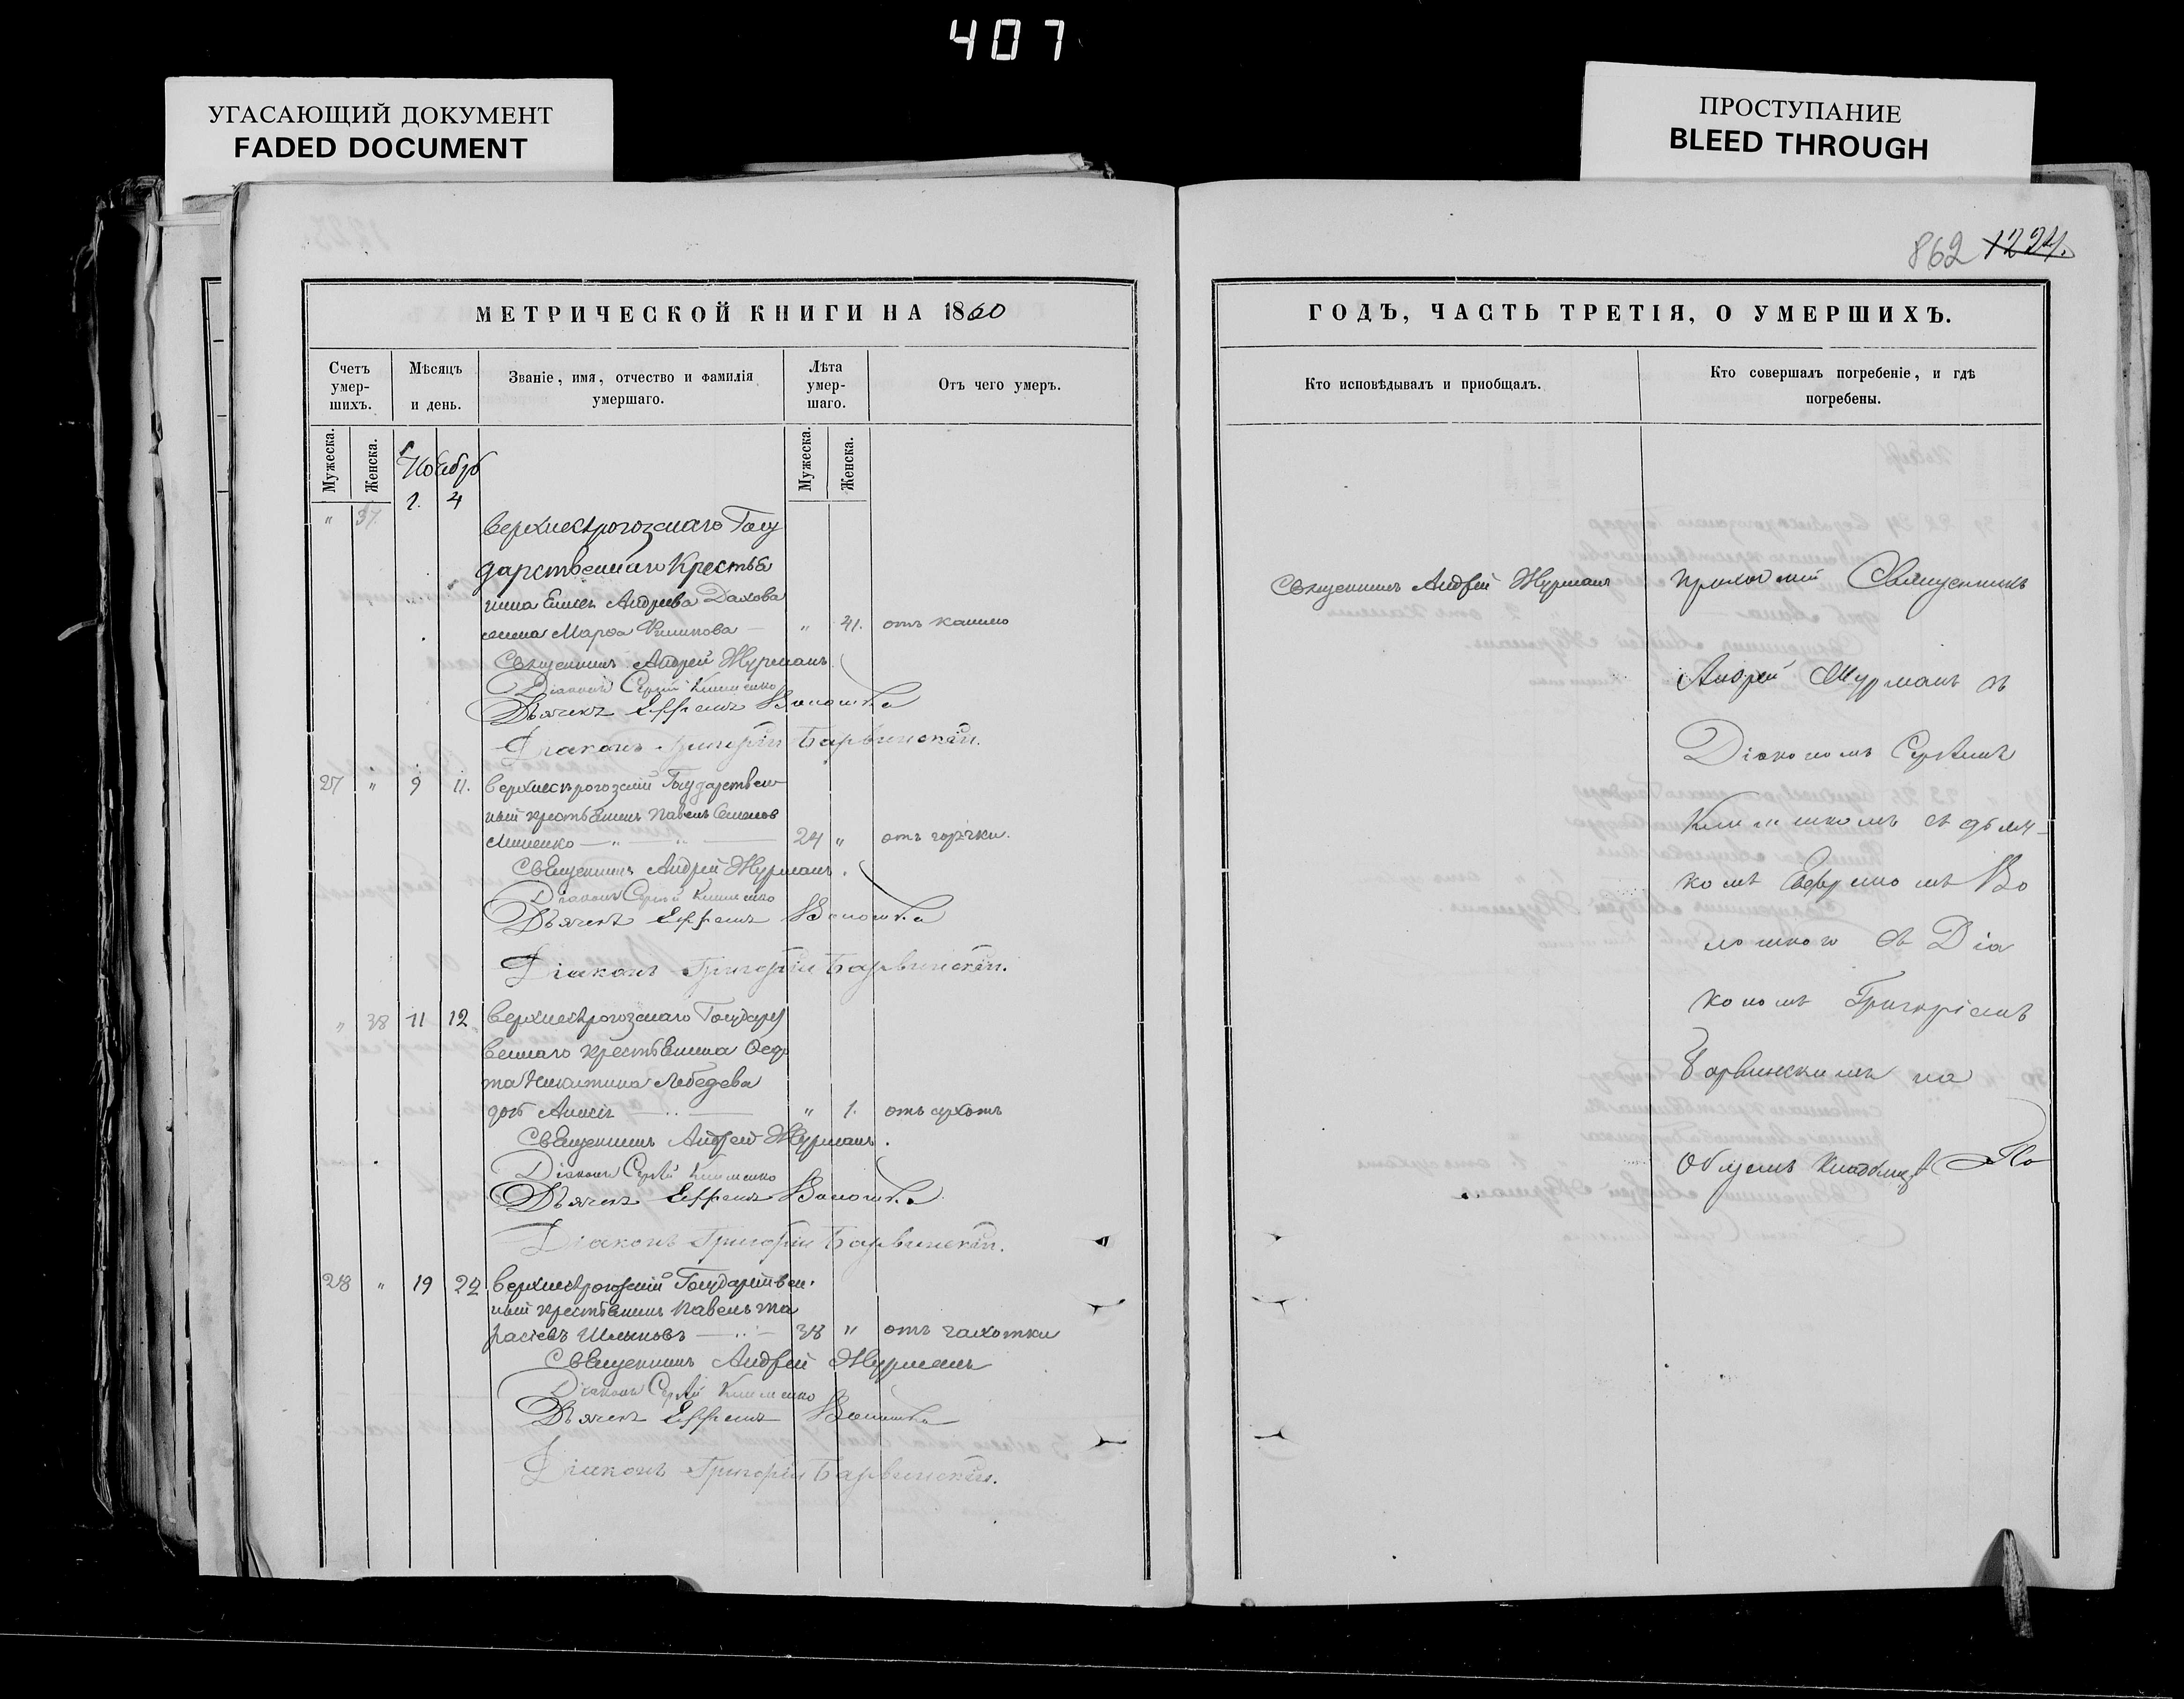 407
УГАСАЮЩИЙ ДОКУМЕНТ
FADED DOCUMENT
ПРОСТУПАНИЕ
BLEED THROUGH
862 1224.
МЕТРИЧЕСКОЙ КНИГИ НА 1860
Счетъ умер-шихъ.
Мѣсяцъ и день.
Званіе, имя, отчество и фамилія умершаго.
Лѣта умер-шаго.
Отъ чего умеръ.
Мужеска. Женска.
Ноябрь
Мужеска. Женска.
" 37. 1. 4
Верхнесѣрогозскаго Госу
дарственнаго Крестья
нина Андреева
жена Марѳа Филипова " 41. отъ кашлю
Священникъ Андрей Журманъ
Діаконъ Сергѣй Клименко
Дьячекъ Ефремъ Волошка
Діаконъ Григорій Барвинскій.
27 " 9 11. Верхнесѣрогозскій Государствен
ный крестьянинъ Павелъ Семенов
Миненко — " — 24 " отъ горячки.
Священникъ Андрей Журманъ.
Діаконъ Сергѣй Клименко
Дьячекъ Ефремъ Волошка
Діаконъ Григорій Барвинскій.
" 38 11 12 Верхнесѣрогозскаго Государст
веннаго крестьянина Ѳедо
та Никитина Лебедева
дочь " 1. отъ сухотъ
Священникъ Андрей Журманъ.
Діаконъ Сергѣй Клименко
Дьячекъ Ефремъ Волошка
Діаконъ Григорій Барвинскій.
28 " 19 22 Верхнесѣрогозскій Государствен
ный крестьянинъ Павелъ Та
расіевъ 38 " отъ чахотки
Священникъ Андрей Журманъ
Діаконъ Сергѣй Клименко
Дьячекъ Ефремъ Волошка
Діаконъ Григорій Барвинскій.
ГОДЪ, ЧАСТЬ ТРЕТІЯ, О УМЕРШИХЪ.
Кто исповѣдывалъ и пріобщалъ.
Кто совершалъ погребеніе, и гдѣ погребены.
Священникъ Андрей Журманъ
Приходскій Священникъ
Андрей Журманъ съ
Діакономъ Сергѣемъ
Клименкомъ съ дьяч-
комъ Ефремомъ Во
лошкою съ Діа
кономъ Григоріемъ
Барвинскимъ на
Общемъ Кладбищѣ По